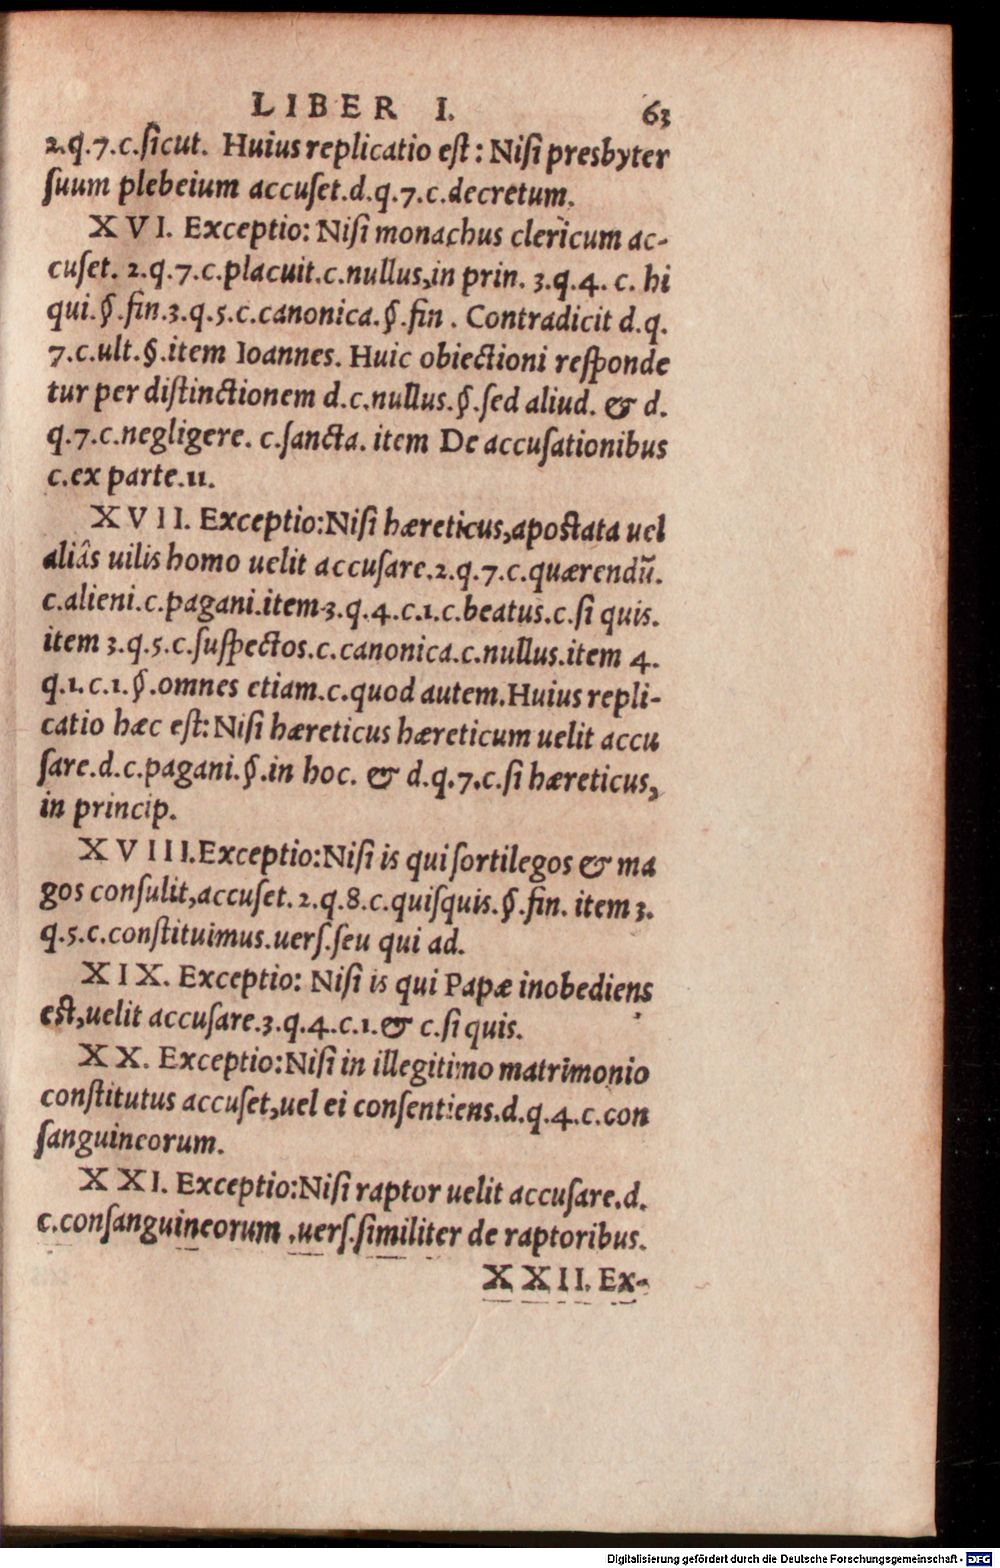 LIBER I. 63
2.q.7.c.sicut. Huius replicatio est: Nisi presbyter
suum plebeium accuset.d.q.7.c.decretum.
XVI. Exceptio: Nisi monachus clericum ac-
cuset. 2.q.7.c.placuit.c.nullus,in prin. 3.q.4. c. hi
qui.§.fin.3.q.5.c.canonica.§.fin. Contradicit d.q.
7.c.ult.§.item Ioannes. Huic obiectioni responde
tur per distinctionem d.c.nullus.§.sed aliud. & d.
q.7.c.negligere. c.sancta. item De accusationibus
c.ex parte.11.
XVII. Exceptio:Nisi hæreticus,apostata uel
aliâs uilis homo uelit accusare.2.q.7.c.quærendū.
c.alieni.c.pagani.item 3.q.4.c.1.c.beatus.c.si quis.
item 3.q.5.c.suspectos.c.canonica.c.nullus.item 4.
q.1.c.1.§.omnes etiam.c.quod autem.Huius repli-
catio hæc est:Nisi hæreticus hæreticum uelit accu
sare.d.c.pagani.§.in hoc. & d.q.7.c.si hæreticus,
in princip.
XVIII.Exceptio:Nisi is qui sortilegos & ma
gos consulit,accuset. 2.q.8.c.quisquis.§.fin. item 3.
q.5.c.constituimus.uers.seu qui ad.
XIX. Exceptio: Nisi is qui Papæ inobediens
est,uelit accusare.3.q.4.c.1.& c.si quis.
XX. Exceptio:Nisi in illegitimo matrimonio
constitutus accuset,uel ei consentiens.d.q.4.c.con
sanguineorum.
XXI. Exceptio:Nisi raptor uelit accusare.d.
c.consanguineorum .uers.similiter de raptoribus.
XXII. Ex-
Digitalisierung gefördert durch die Deutsche Forschungsgemeinschaft - DFG